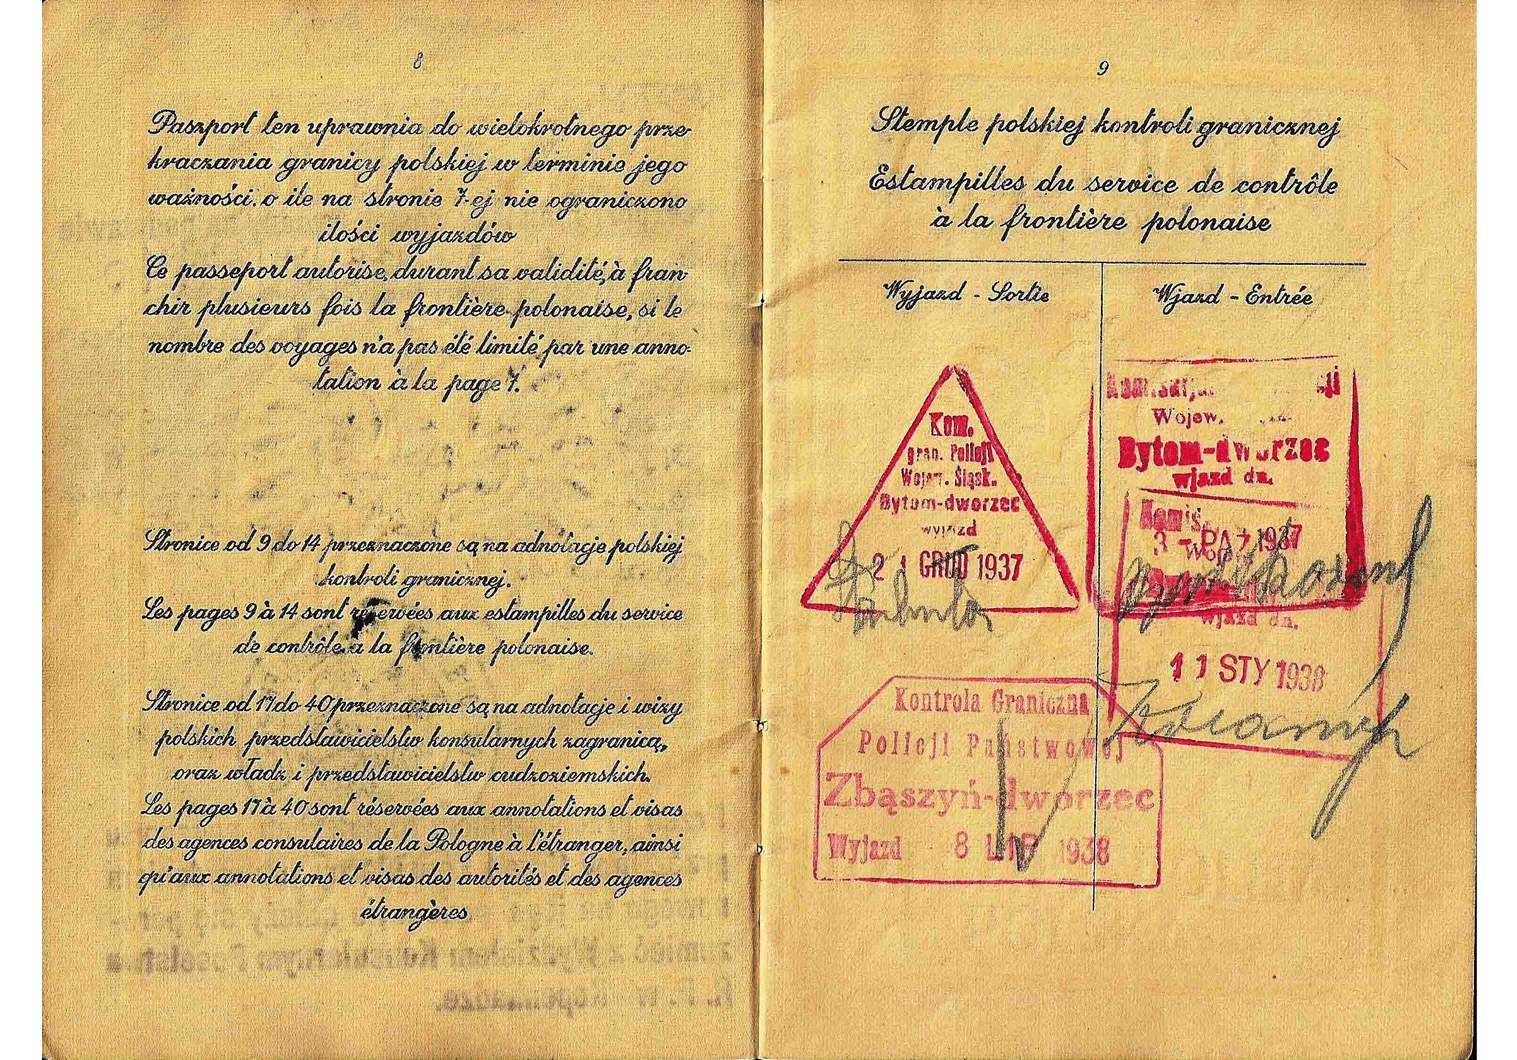 8
Paszport ten uprawnia do wielokrotnego prze-
kraczania granicy polskiej w terminie jego
ważności, o ile na stronie 7-ej nie ograniczono
ilości wyjazdów
Ce passeport autorise, durant sa validité, à fran
chir plusieurs fois la frontière polonaise, si le
nombre des voyages n'a pas été limité par une anno-
tation à la page 7.
Stronice od 9 do 14 przeznaczone są na adnotacje polskiej
kontroli granicznej.
Les pages 9 à 14 sont réservées aux estampilles du service
de contrôle à la frontière polonaise.
Stronice od 17 do 40 przeznaczone są na adnotacje i wizy
polskich przedstawicielstw konsularnych zagranicą,
oraz władz i przedstawicielstw cudzoziemskich.
Les pages 17 à 40 sont réservées aux annotations et visas
des agences consulaires de la Pologne à l'étranger, ainsi
qu'aux annotations et visas des autorités et des agences
étrangères
9
Stemple polskiej kontroli granicznej
Estampilles du service de contrôle
à la frontière polonaise
Wyjazd - Sortie
Wjazd - Entrée
Kom.
gran. Policji
Wojew. Śląsk.
Bytom-dworzec
wyjazd
21 GRUD 1937
Wojew.
Bytom-dworzec
wjazd dn.
3 - PAŹ 1937
wjazd dn.
11 STY 1938
Kontrola Graniczna
Policji Państwowej
Zbąszyń-dworzec
Wyjazd 8 LIP 1938